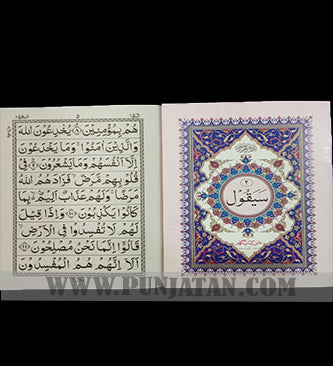 هُمْ بِمُؤْمِنِيْنَ ﴿٨﴾ يُخٰدِعُوْنَ اللّٰهَ
وَالَّذِيْنَ اٰمَنُوْا ۚ وَمَا يَخْدَعُوْنَ
اِلَّاۤ اَنْفُسَهُمْ وَمَا يَشْعُرُوْنَ ﴿٩﴾ فِيْ
قُلُوْبِهِمْ مَّرَضٌ ۙ فَزَادَهُمُ اللّٰهُ
مَرَضًا ۚ وَلَهُمْ عَذَابٌ اَلِيْمٌ ۢ ۙ بِمَا
كَانُوْا يَكْذِبُوْنَ ﴿١٠﴾ وَاِذَا قِيْلَ
لَهُمْ لَا تُفْسِدُوْا فِي الْاَرْضِ ۙ
قَالُوْۤا اِنَّمَا نَحْنُ مُصْلِحُوْنَ ﴿١١﴾
اَلَاۤ اِنَّهُمْ هُمُ الْمُفْسِدُوْنَ
٢
سَيَقُوْلُ
WWW.PUNJATAN.COM